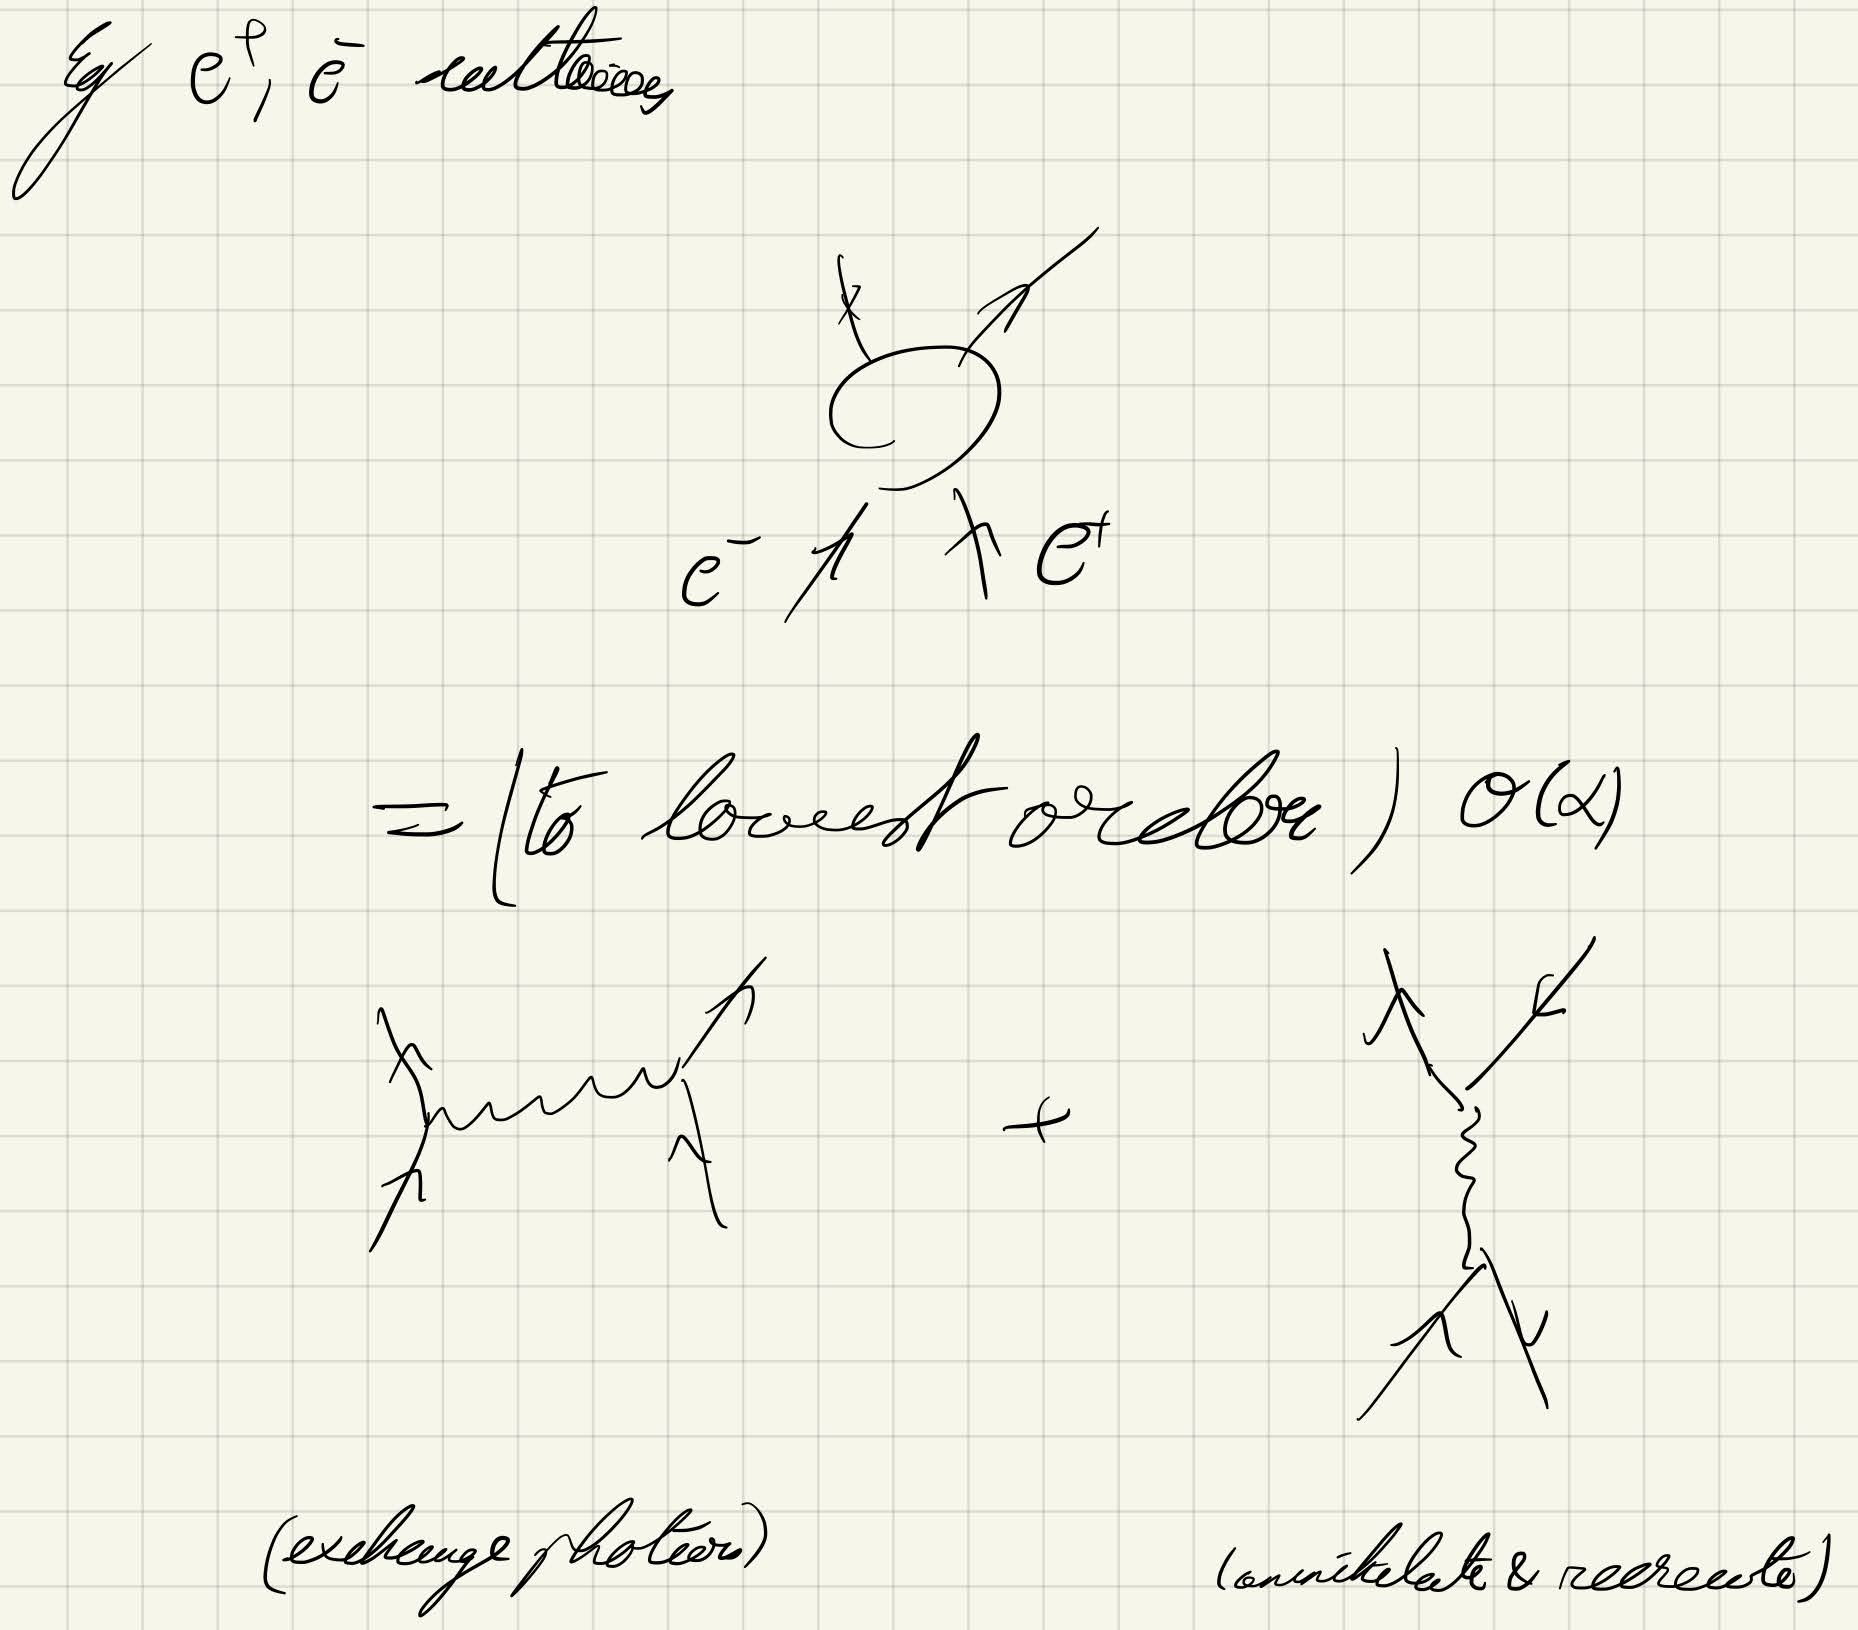 Eg e⁺, e⁻ scattering
e⁻ e⁺
= (to lowest order) O(α)
+
(exchange photon) (annihilate & recreate)